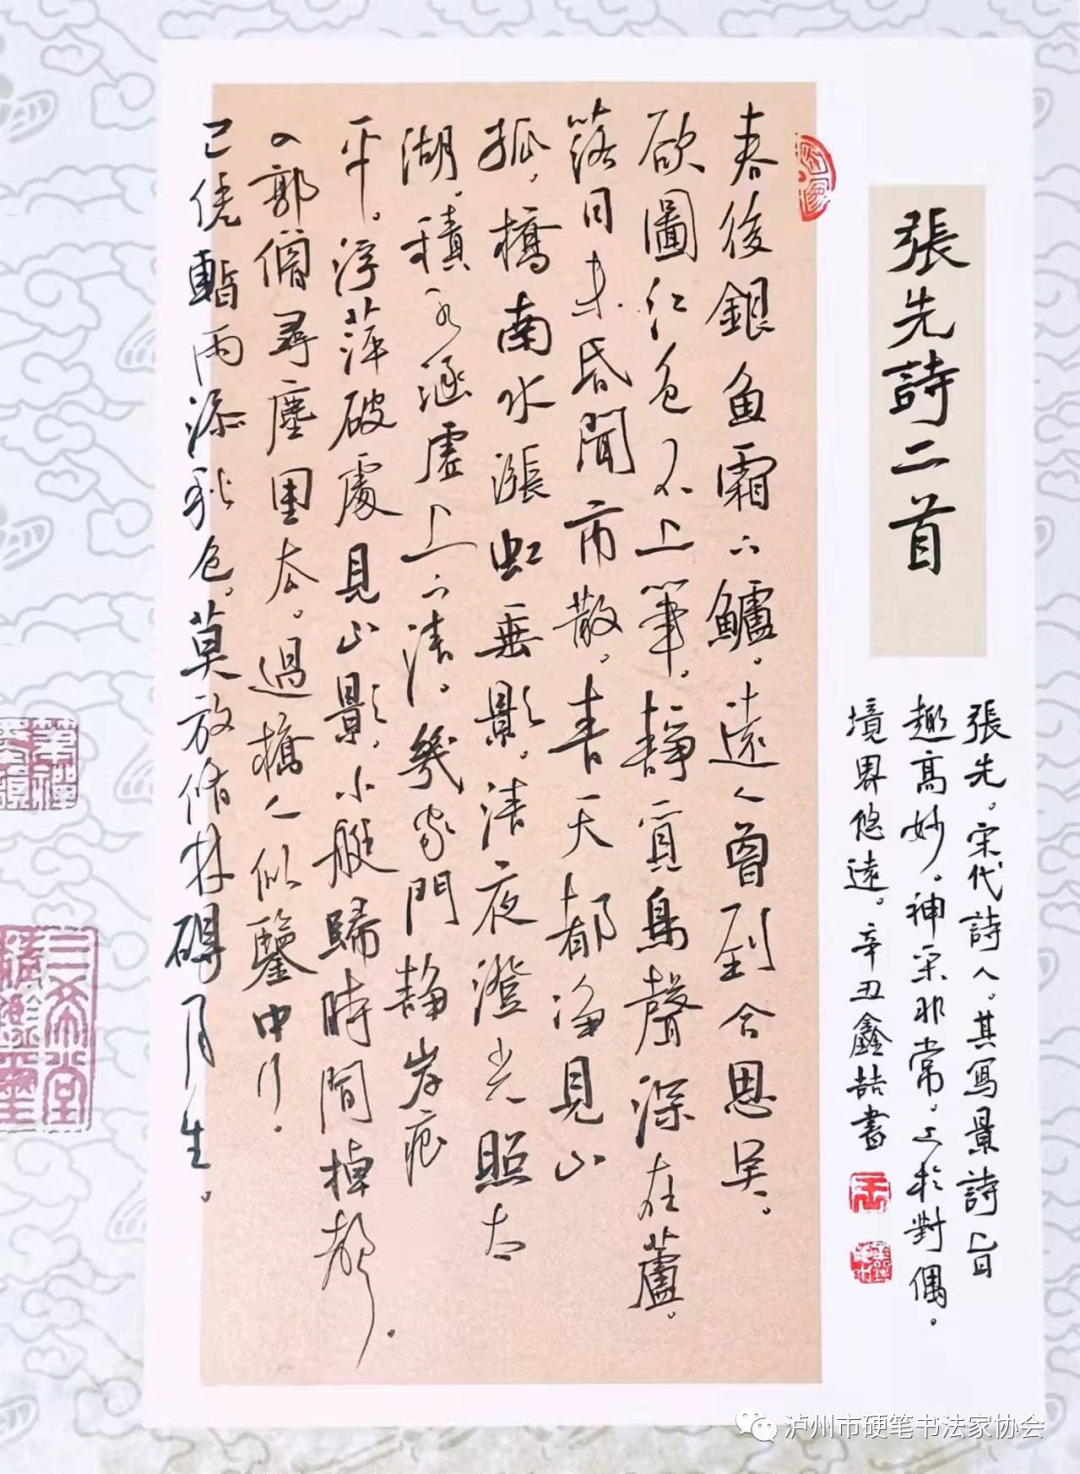 張先詩二首
張先。宋代詩人。其寫景詩旨
趣高妙。神采非常。工於對偶。
境界悠遠。辛丑鑫喆書
春後銀魚霜下鱸。遠人曾到合思吳。
欲圖江色不上筆。靜覓鳥聲深在蘆。
落日未昏聞市散。青天都淨見山
孤。橋南水漲虹垂影。清夜澄光照太
湖。積水涵虛上下清。幾家門靜岸痕
平。浮萍破處見山影。小艇歸時聞棹聲。
入郭僧尋塵里去。過橋人似鑒中行。
已憑暫雨添秋色。莫放修林礙月生。
泸州市硬笔书法家协会